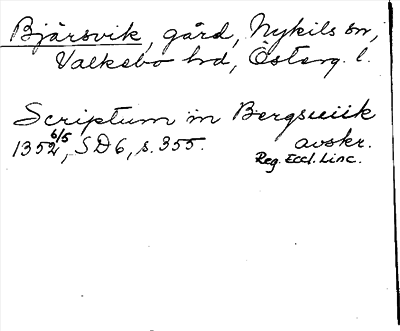 Bjärsvik, gård, Nykils sn,
Valkebo hd, Österg. l.
Scriptum in Bergswiik
1352 6/5, SD6, s. 355. avskr.
Reg. Eccl. Linc.